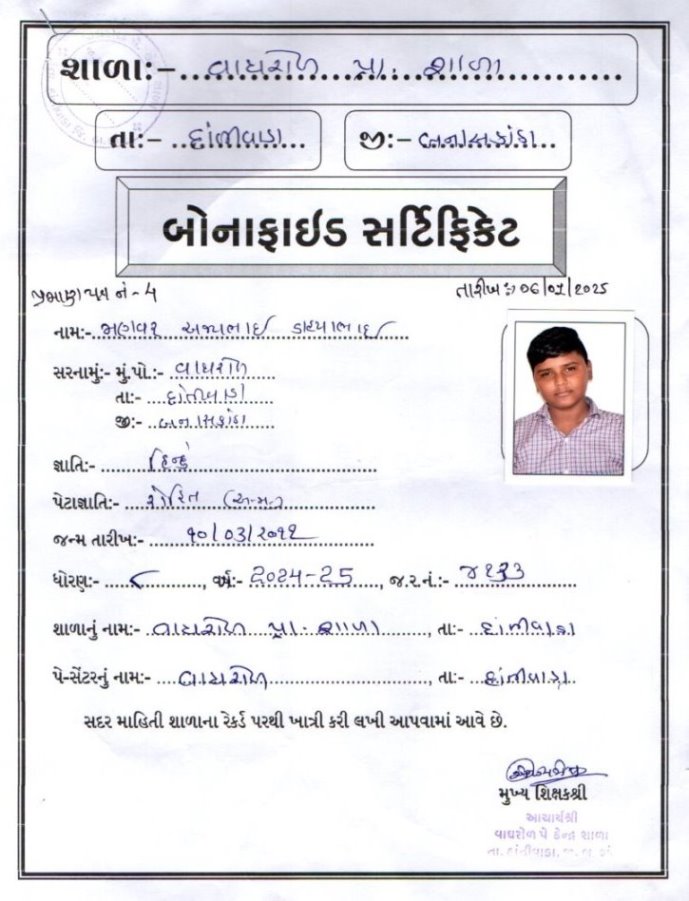 શાળાઃ– વાઘરોળ પ્રા. શાળા
તાઃ– દાંતીવાડા જીઃ– બનાસકાંઠા
બોનાફાઈડ સર્ટિફિકેટ
પ્રમાણપત્ર નં - 4 તારીખઃ 06/01/2025
નામઃ- અજયભાઈ
સરનામુંઃ- મું.પો.ઃ- વાઘરોળ
તાઃ- દાંતીવાડા
જીઃ- બનાસકાંઠા
જ્ઞાતિઃ- હિન્દુ
પેટાજ્ઞાતિઃ- રોહિત
જન્મ તારીખઃ- ૧૦/03/૨૦૧૧
ધોરણઃ- ૮, વર્ષઃ- 2૦૨4-25, જ.ર.નં.ઃ-
શાળાનું નામઃ- વાઘરોળ પ્રા. શાળા, તાઃ- દાંતીવાડા
પે-સેંટરનું નામઃ- વાઘરોળ, તાઃ- દાંતીવાડા
સદર માહિતી શાળાના રેકર્ડ પરથી ખાત્રી કરી લખી આપવામાં આવે છે.
મુખ્ય શિક્ષકશ્રી
આચાર્યશ્રી
વાઘરોળ પે કેન્દ્ર શાળા
તા. દાંતીવાડા, જી. બ. કાં